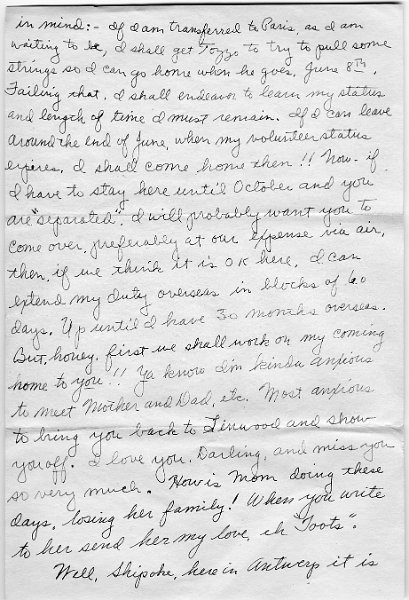 in mind:- If I am transferred to Paris, as I am
waiting to be, I shall get Tozzo to try to pull some
strings so I can go home when he goes, June 8th.
Failing that, I shall endeavor to learn my status
and length of time I must remain. If I can leave
around the end of June, when my volunteer status
expires, I shall come home then!! Now - if
I have to stay here until October and you
are "separated", I will probably want you to
come over, preferably at our expense via air,
then, if we think it is OK here, I can
extend my duty overseas in blocks of 60
days. Up until I have 30 months overseas.
But, honey, first we shall work on my coming
home to you!!! Ya know I'm kinda anxious
to meet Mother and Dad, etc. Most anxious
to bring you back to Linwood and show
you off. I love you, Darling, and miss you
so very much. How is Mom doing these
days, losing her family! When you write
to her send her my love, eh "Toots".
Well, here in Antwerp it is